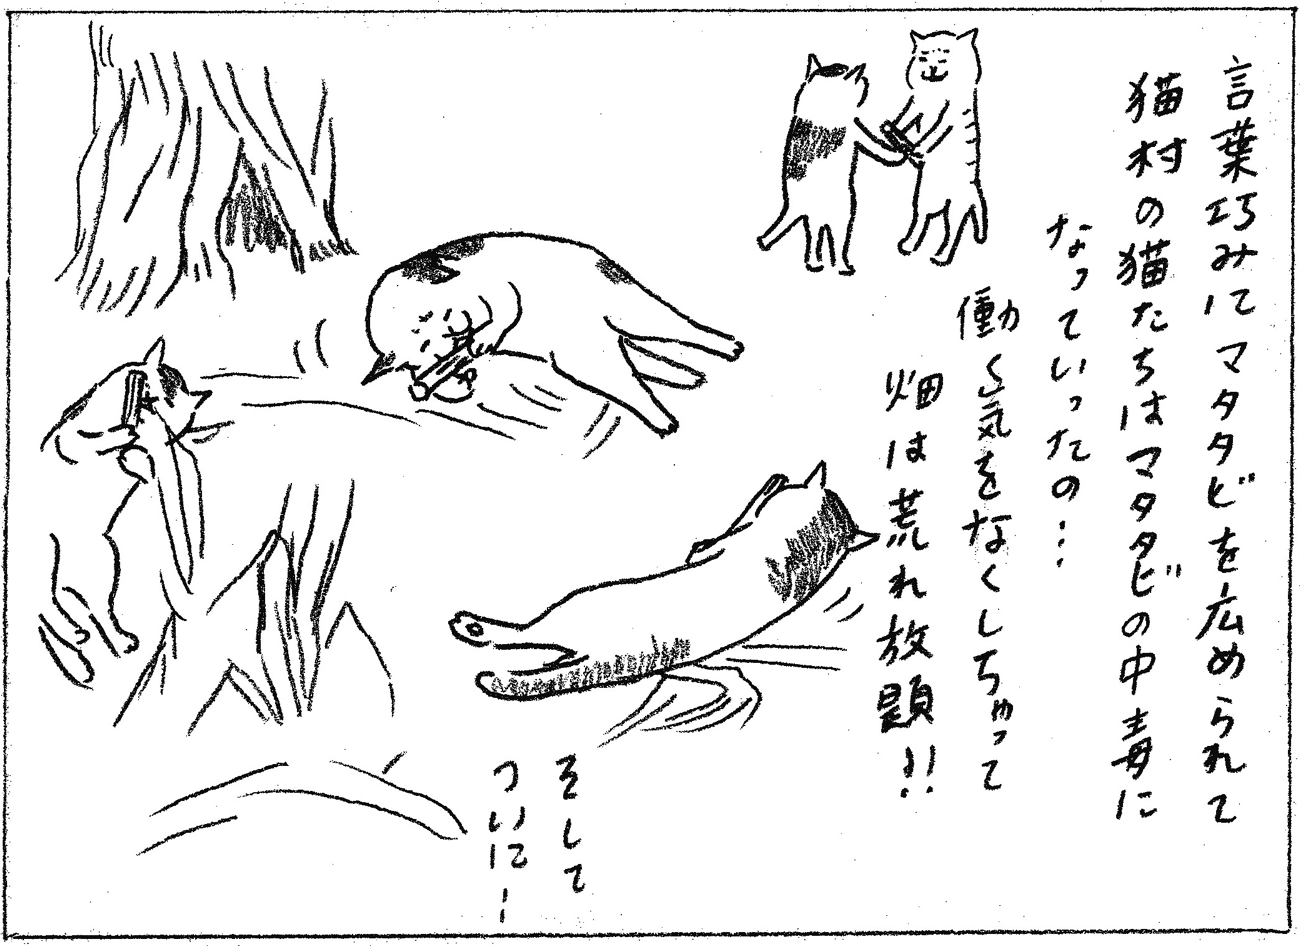 言葉巧みにマタタビを広められて
猫村の猫たちはマタタビの中毒に
なっていったの…
働く気をなくしちゃって
畑は荒れ放題!!
そして
ついにー